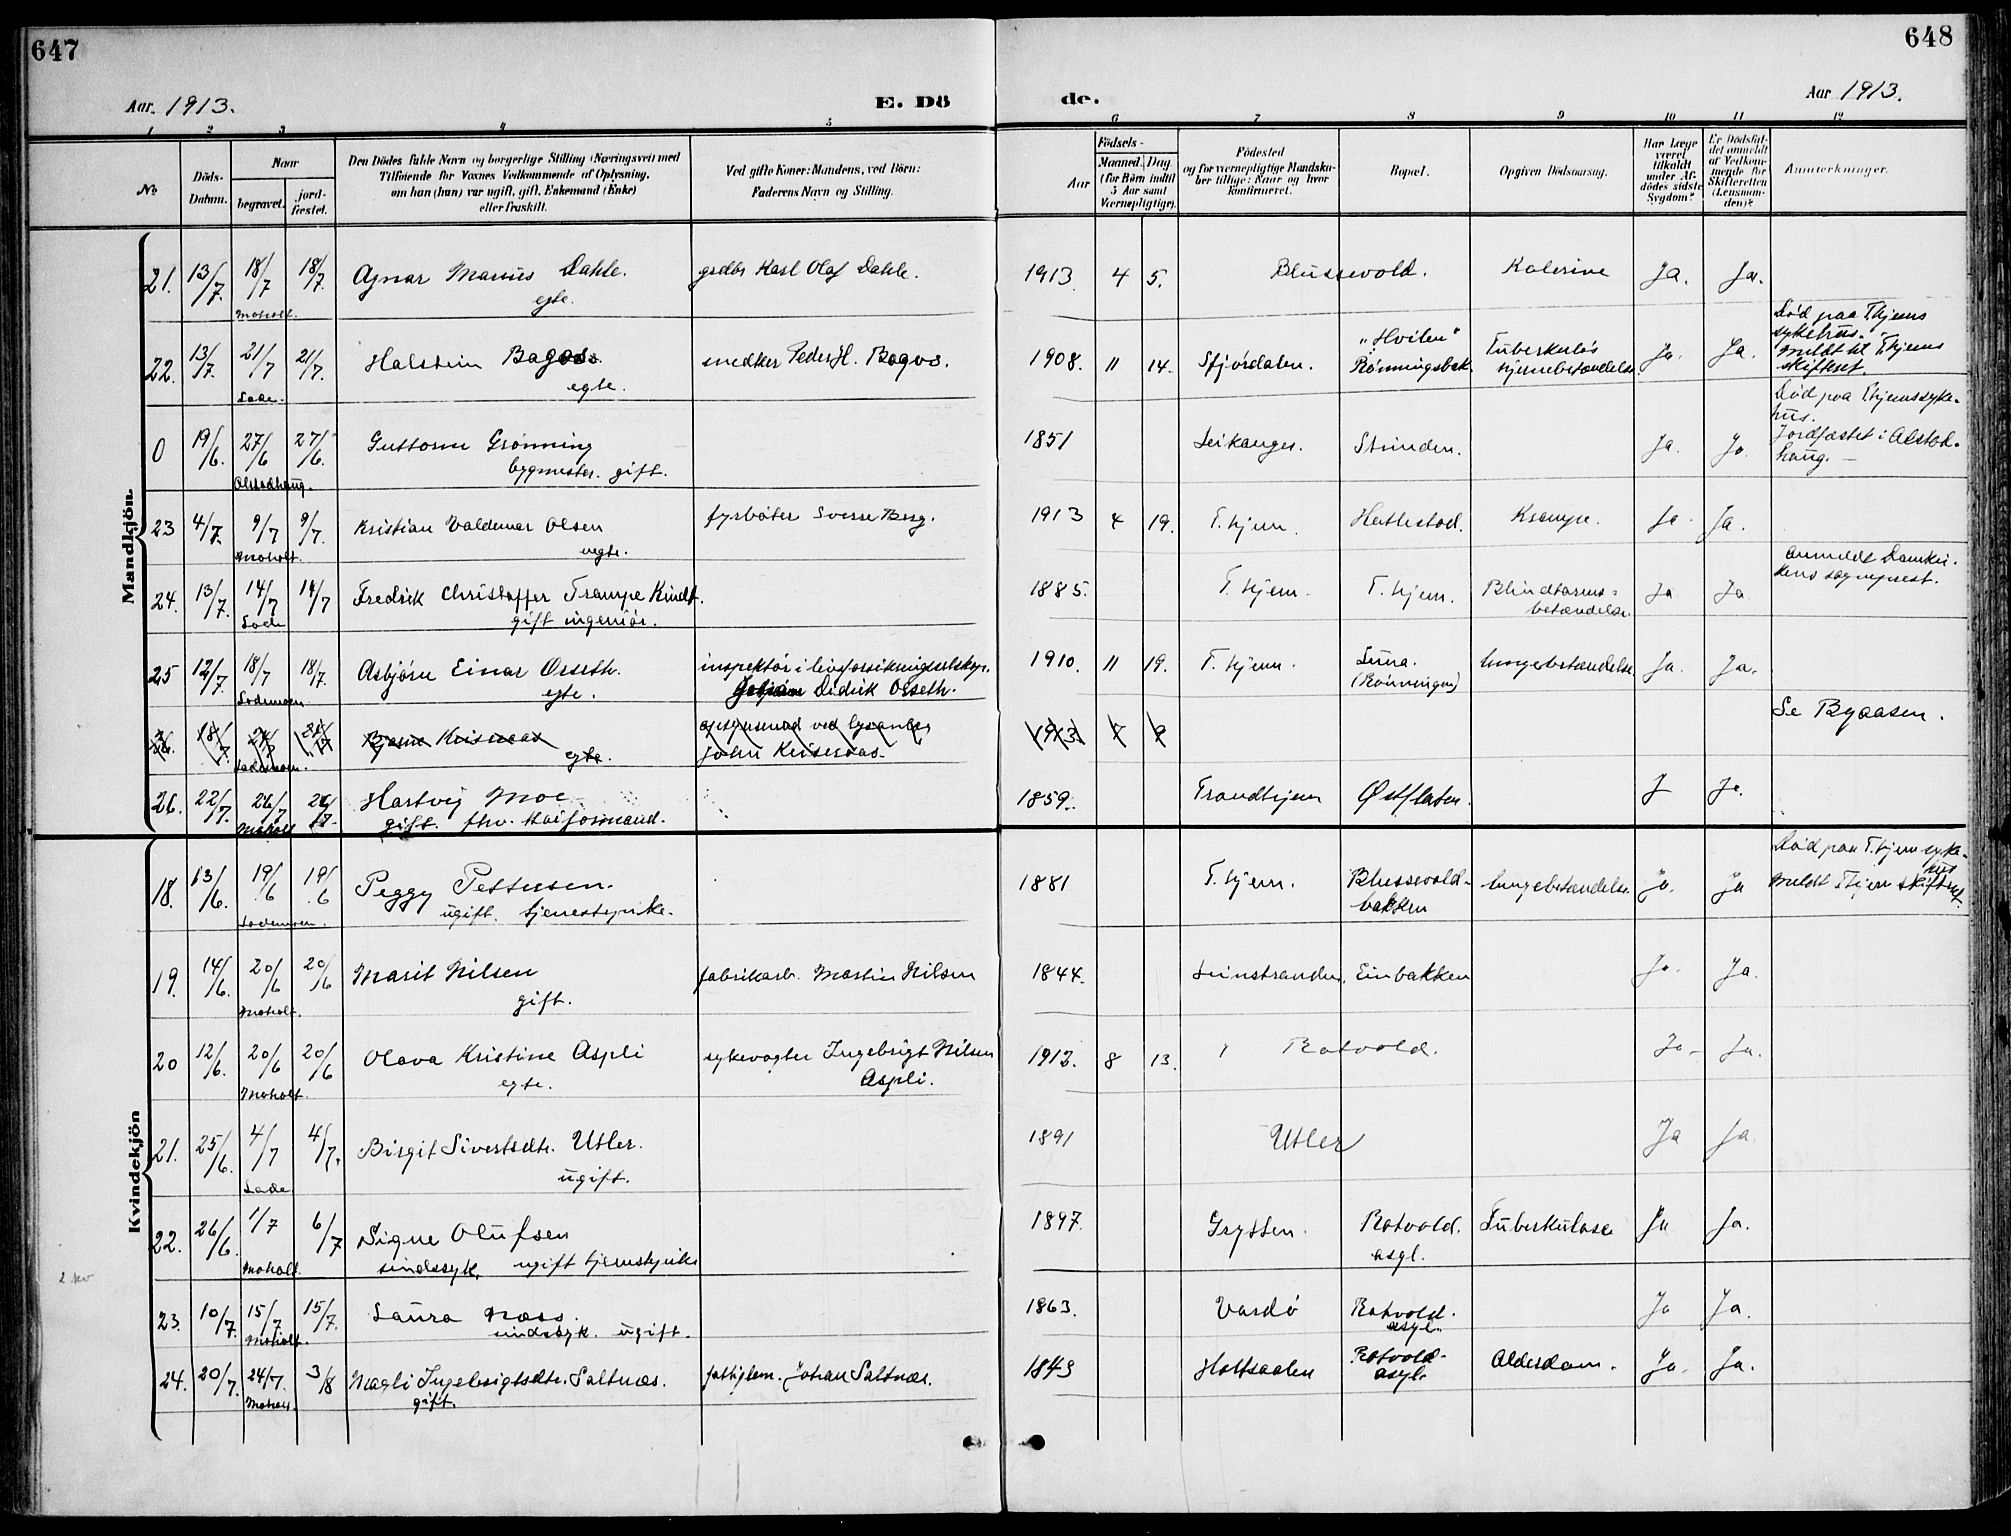 647
648
Aar. 1913.
E. Dö
de.
Aar 1913.
1 2 3 4 5
6 7 8 9 10 11 12
No
Döds-Datum.
Naar
begravet.
jord-fæstet.
Den Dödes fulde Navn og borgerlige Stilling (Næringsvei) med
Tilföiende for Voxnes Vedkommende af Oplysning,
om han (hun) var ugift, gift, Enkemand (Enke)
eller fraskilt.
Ved gifte Koner: Mandens, ved Börn:
Faderens Navn og Stilling.
Födsels-
Aar
Maaned. Dag.
(for Börn indtil
5 Aar samt
Værnepligtige).
Födested
og for værnepligtige Mandska-
ber tillige: Naar og hvor
konfirmeret.
Bopæl.
Opgiven Dödsaarsag.
Har Læge
været
tilkaldt
under Af-
dödes sidste
Sygdom?
Er Dödsfal-
det anmeldt
af Vedkom-
mende for
Skifteretten
(Lensman-
den)?
Anmærkninger.
Mandkjön.
21. 13/7. 18/7 18/7. Agnar Marius Dahle. grdbr Karl Olaf Dahle. 1913. 4 5. Blussevold. Kolerine Ja. Ja.
Moholt. egte.
22. 13/7. 21/7 21/7. Halstein Bagøs. snedker Peder H. Bagøs. 1908. 11 14. Stjørdalen. "Hvilen" Rønningsbak. Tuberkuløs hjernebetændelse Ja. Ja. Død paa T.hjems
sykehus.
Meldt til T.hjems
skifteret.
Lade. egte.
0 19/6. 27/6 27/6. Guttorm Grønning 1851 Leikanger. Strinden. Ja. Ja. Død paa T.hjems syke-
hus.
Jordfæstet i Alstad-
haug. —
Alstadhaug. bygmester. gift.
23 4/7. 9/7 9/7. Kristian Valdemar Olsen fyrbøter Sverre Berg. 1913 4 19. T.hjem. Hallestad. Krampe. Ja. Ja.
Moholt. uegte.
24. 13/7. 14/7 14/7 Fredrik Christoffer Trampe Kindt. 1885. T.hjem. T.hjem. Blindtarms-
betændelse Ja Ja anmeldt Domkir-
kens sogneprest.
Lade gift ingeniør.
25 12/7. 18/7 18/7. Asbjørn Einar Osseth. inspektør i livsforsikringsselskap. 1910. 11 19. T.hjem. Luna.
(Rønningen) lungebetændelse Ja. Ja.
Lademoen. egte. Didrik Osseth.
26. 18/7 Bjarne egte. John 1913. 7 Se Byaasen.
Lademoen.
26. 22/7. 26/7 Hartvig Moe 1859. Trondhjem Østflaten. J Ja.
Moholt gift. fhv. kaiformand.
Kvindekjön
18. 13/6. 19/6 19/6 Peggy Pettersen. 1881 T.hjem. Blussevold-
bakken lungebetændelse. Ja. Ja Død paa T.hjem syke-
hus
Meldt T.hjem skifteret.
Lademoen. ugift. tjenestepike.
19. 14/6. 20/6 20/6 Marit Nilsen fabrikarb. Martin Nilsen 1844. Leinstranden. Einbakken Ja. Ja.
Moholt. gift.
20 12/6. 20/6 20/6 Olava Kristine Aspli sykevogter Ingebrigt Nilsen 1912. 8 13. Rotvold. Ja. Ja.
Moholt. egte. Aspli.
21. 25/6. 4/7 4/7. Birgit Sivertsdtr. Utler. 1891 Utler Ja Ja.
Lade ugift.
22. 26/6. 1/7 6/7 Signe Olufsen 1897. Grytten. Rotvold. Tuberkulose Ja Ja.
Moholt. sindssyk. ugift tjenestepike asyl.
23. 10/7. 15/7 15/7. Laura Næss. 1863. Vardø Rotvold.
asyl. Ja Ja.
Moholt. sindssyk. ugift.
24. 20/7. 24/7. 3/8 Magli Ingebrigtsdtr. Saltnæs. fattiglem. Johan Saltnæs. 1849 Holtaalen Rotvold-
asyl. Alderdom. Ja. Ja.
Moholt gift.